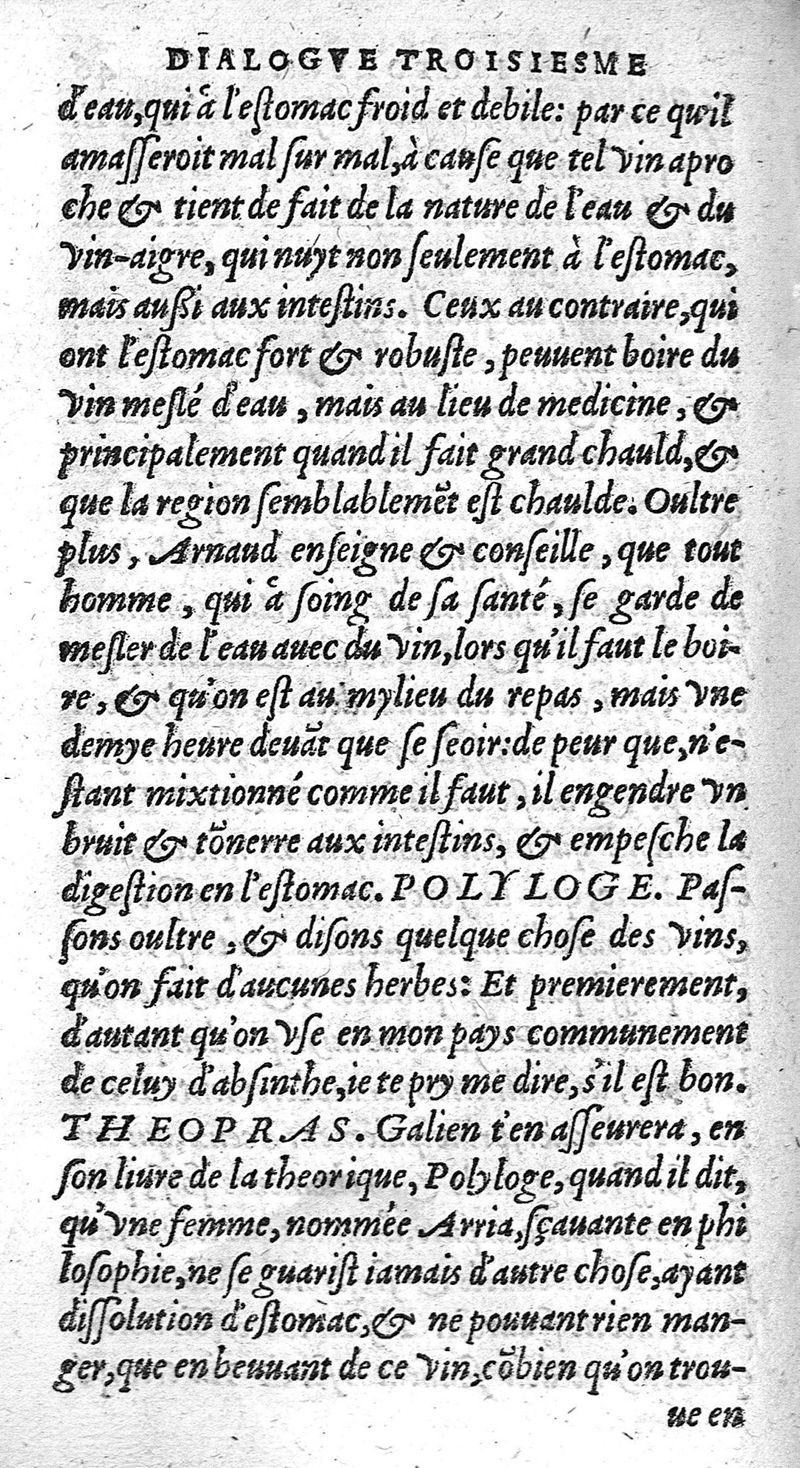 DIALOGVE TROISIESME
d'eau,qui à l'eſtomac froid et debile: par ce qu'il
amaſſeroit mal ſur mal,à cauſe que tel vin apro
che & tient de fait de la nature de l'eau & du
vin-aigre, qui nuyt non ſeulement à l'eſtomac,
mais auſſi aux inteſtins. Ceux au contraire,qui
ont l'eſtomac fort & robuſte , peuuent boire du
vin meſlé d'eau , mais au lieu de medicine , &
principalement quand il fait grand chauld,&
que la region ſemblablemēt eſt chaulde. Oultre
plus , Arnaud enſeigne & conſeille , que tout
homme , qui à ſoing de ſa ſanté , ſe garde de
meſler de l'eau auec du vin,lors qu'il faut le boi-
re , & qu'on eſt au mylieu du repas , mais vne
demye heure deuāt que ſe ſeoir:de peur que,n'e-
ſtant mixtionné comme il faut , il engendre vn
bruit & tōnerre aux inteſtins, & empeſche la
digeſtion en l'eſtomac. POLYLOGE. Paſ-
ſons oultre , & diſons quelque choſe des vins,
qu'on fait d'aucunes herbes: Et premierement,
d'autant qu'on vſe en mon pays communement
de celuy d'abſinthe,ie te pry me dire,s'il eſt bon.
THEOPRAS. Galien t'en aſſeurera , en
ſon liure de la theorique, Polyloge, quand il dit,
qu'vne femme, nommée Arria,ſçauante en phi
loſophie,ne ſe guariſt iamais d'autre choſe,ayant
diſſolution d'eſtomac,& ne pouuant rien man-
ger,que en beuuant de ce vin,cōbien qu'on trou-
ue en